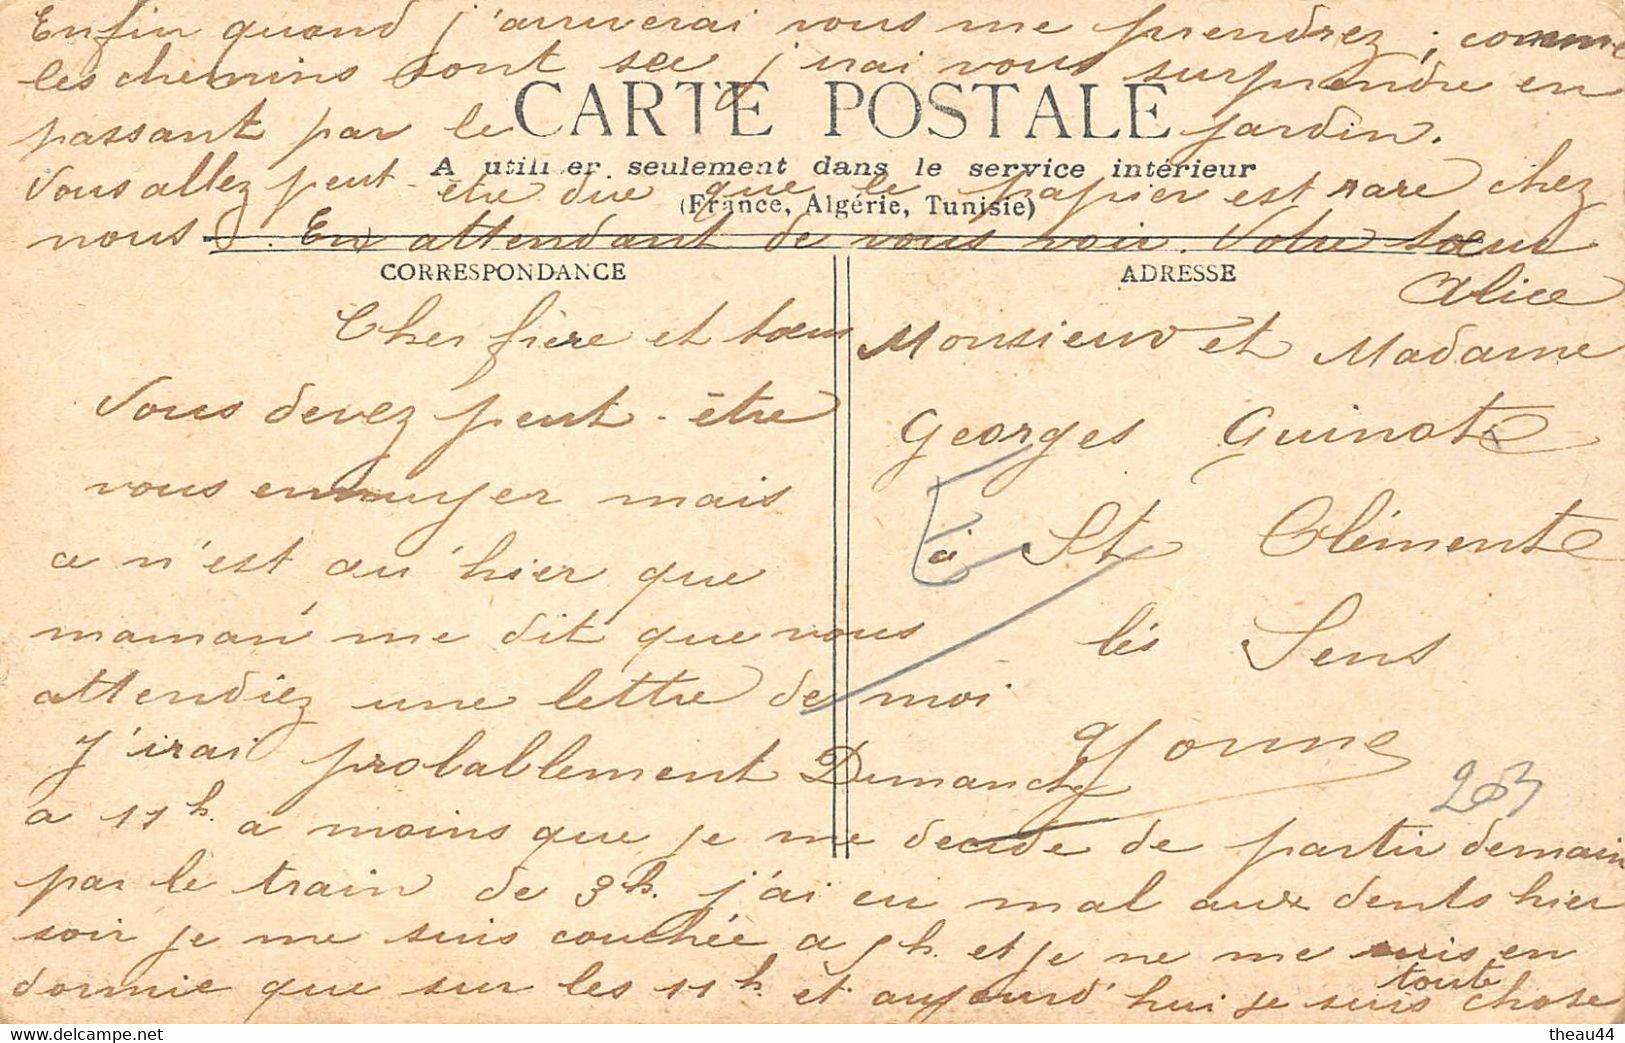 Enfin quand j'arriverai vous me prendrez ; comme
les chemins sont sec j'irai vous surprendre en
passant par le jardin.
CARTE POSTALE
A utiliser seulement dans le service intérieur
(France, Algérie, Tunisie)
Vous allez peut-être dire que le papier est rare chez
nous. En attendant de vous voir. Votre sœur
Alice
CORRESPONDANCE
Cher frère et sœur
Vous devez peut-être
vous ennuyer mais
ce n'est qu'hier que
maman me dit que vous
attendiez une lettre de moi
J'irai probablement Dimanche
a 11h. a moins que je me decide de partir demain
par le train de 3h. j'ai eu mal aux dents hier
soir je me suis couchée a 9h. et je ne me suis en
dormie que sur les 11h. et aujourd'hui je suis toute chose
ADRESSE
Monsieur et Madame
Georges Guinot
à St Clément
lés Sens
Yonne
203
theau44